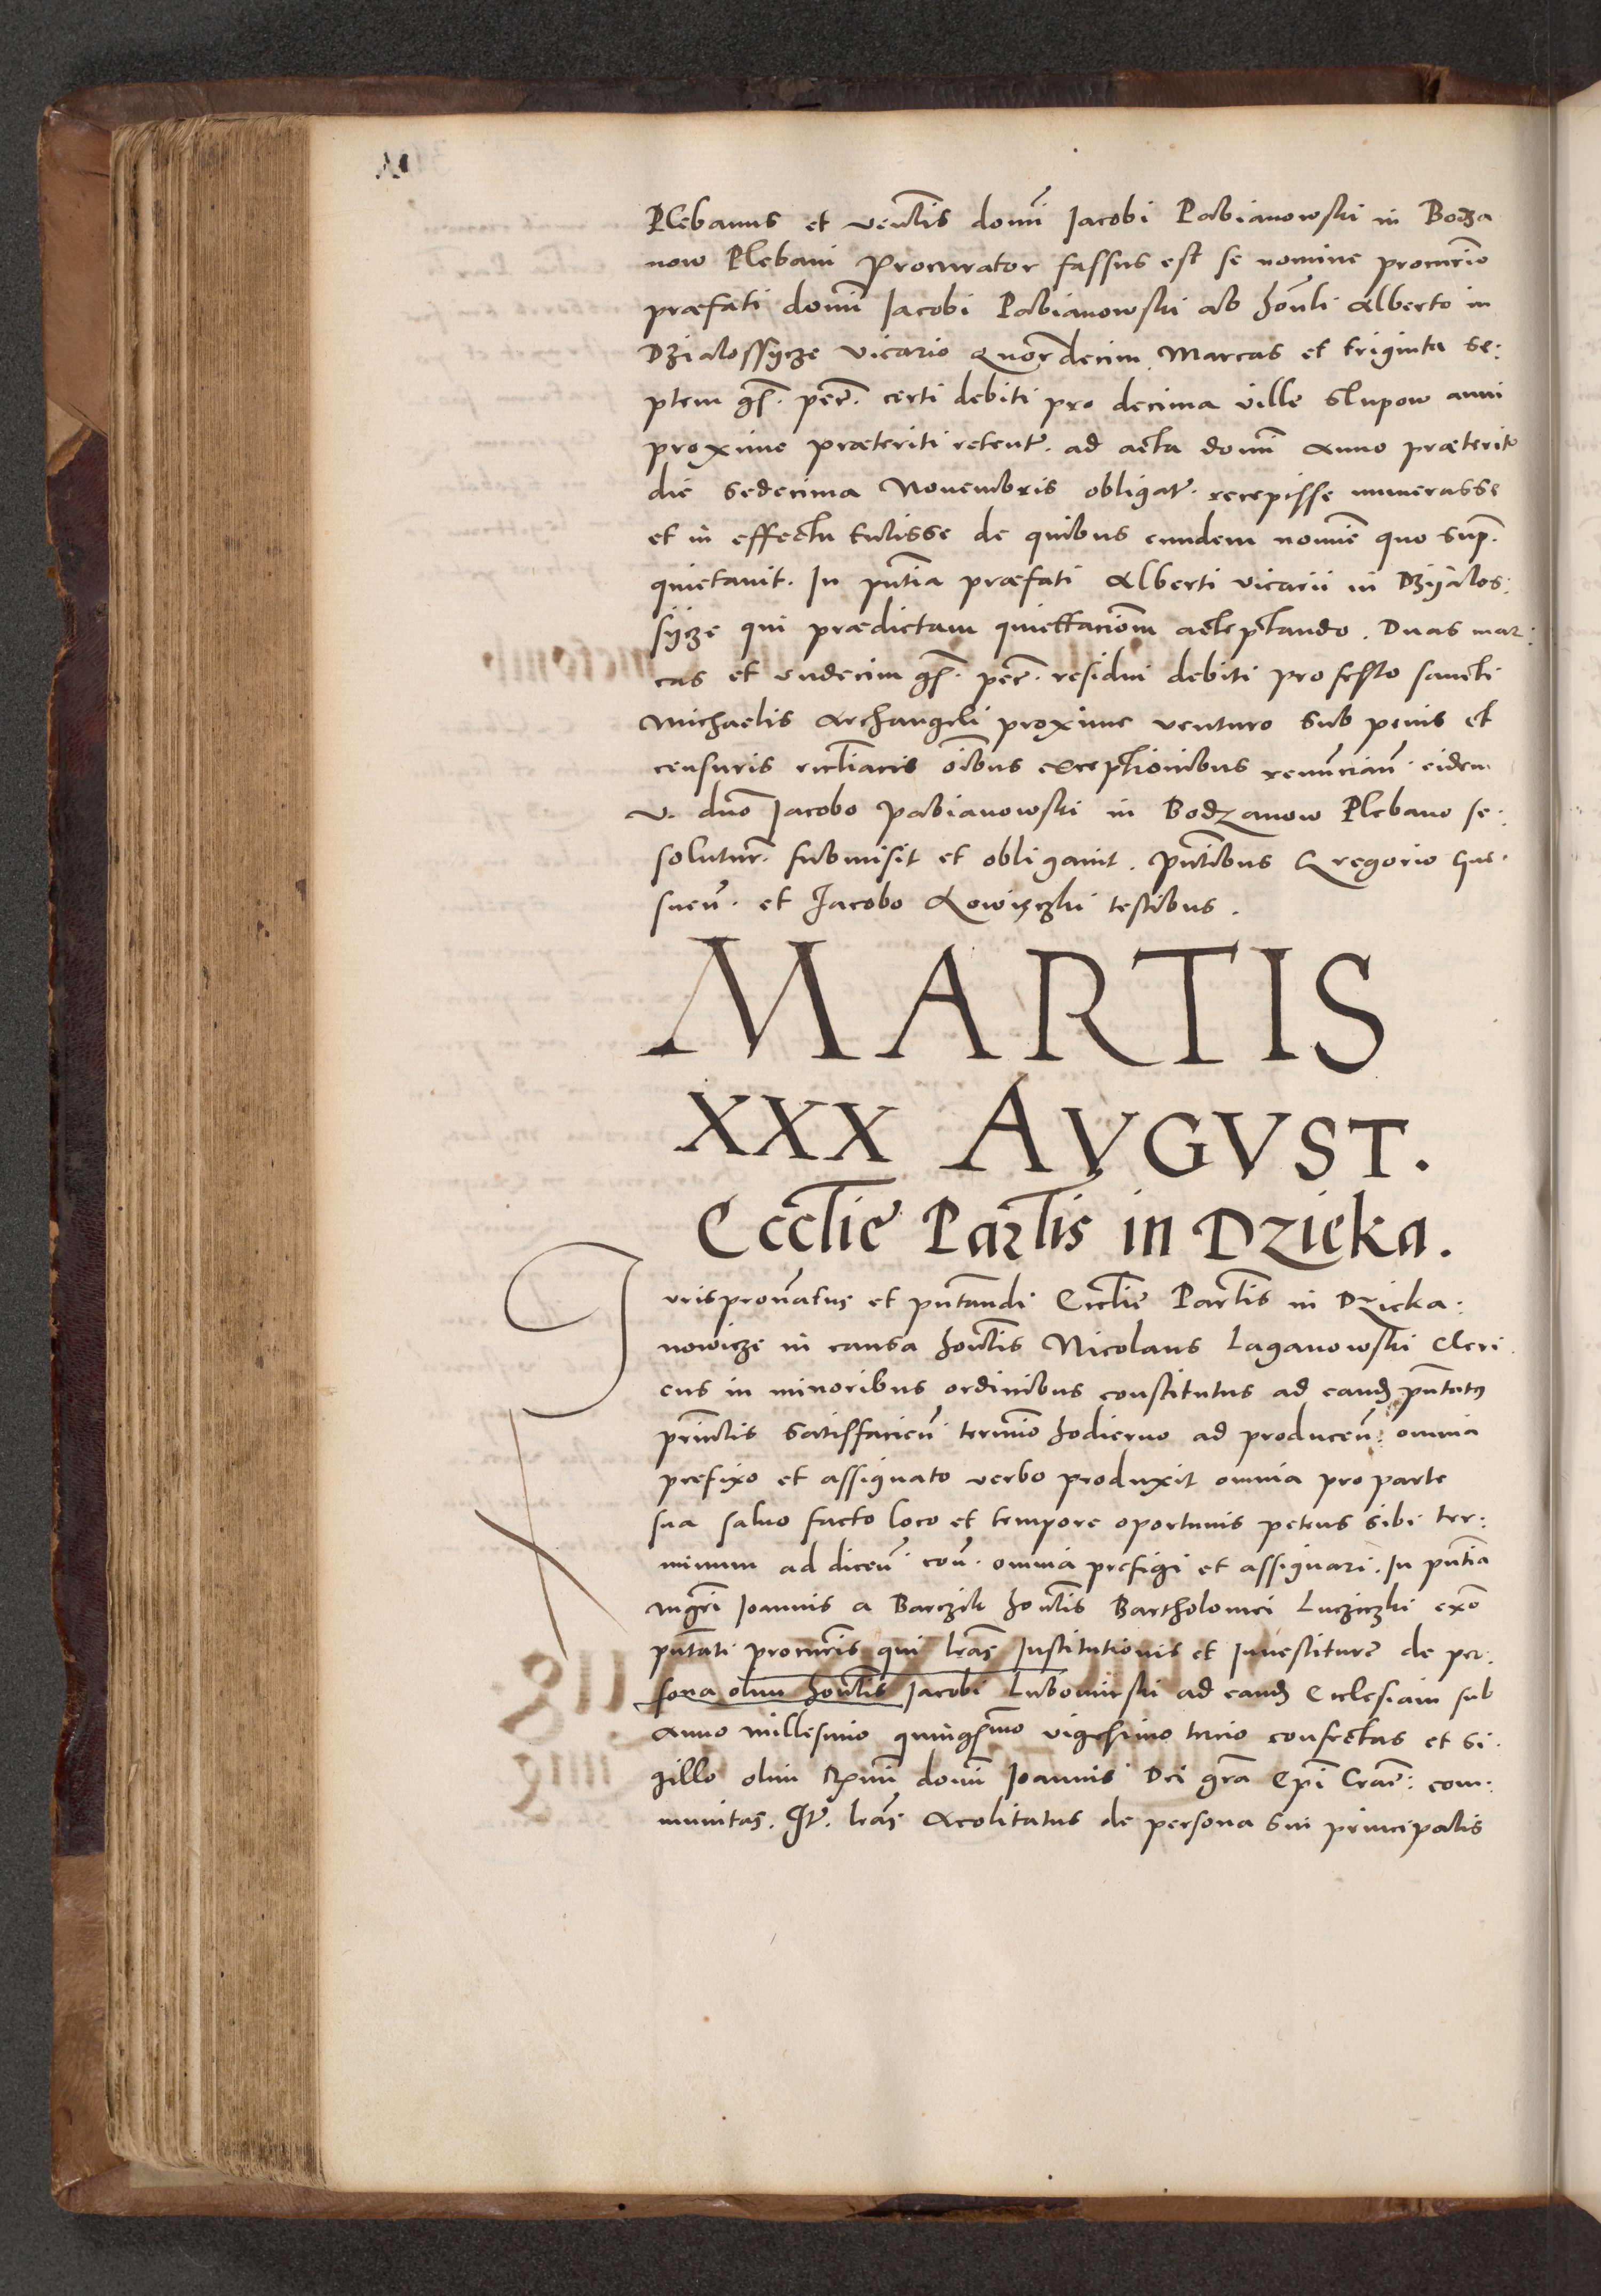 Plebanus et venlis domi Jacobi Pabianowski in Bodza
now Plebani Procurator fassus est se nomine procurio
præfati domi Jacobi Pabianowski ab honli Alberto in
Dzialossycze vicario Quordecim Marcas et triginta se:
ptem gs. pec. certi debiti pro decima ville Slupow anni
proxime præteriti retent. ad acta domi Anno præterito
die Sedecima Novembris obligat. recepisse numerasse
et in effectu tulisse de quibus eundem nomine quo sup.
quietavit. In pntia præfati Alberti vicarii in Dzyalos:
sycze qui prædictam quiettaciom acceptando. Duas mar:
cas et undecim gs. pec. residui debiti pro festo sancti
Michaelis Archangeli proxime venturo sub penis et
censuris ecctiacis oibus exceptionibus renuncian. eidem
v. duo Jacobo Pabianowski in Bodzanow Plebano se.
solutur. submisit et obligavit. pntibus Gregorio
et Jacobo testibus.
MARTIS
XXX AVGVST.
Ecclie Partis in Dzieka.
Jurispronatus et pntandi Ecctie Partis in Dzieka:
nowicze in causa honlis Nicolaus Laganowski Cleri
cus in minoribus ordinibus constitutus ad eand pntatus
princlis satisfacien termino hodierno ad producen: omnia
prefixo et assignato verbo produxit omnia pro parte
sua salvo facto loco et tempore oportunis petens sibi ter:
minum ad dicen con. omnia prefigi et assignari. In pntia
mgri Joannis a Barczik honlis Bartholomei Lucziczki exo
pntati procuris qui lras Institutionis et Investiture de per:
sona olim honlis Jacobi Lubomirski ad eand Ecclesiam sub
Anno millesimo quingsimo vigesimo tercio confectas et si.
gillo olim Rmi domi Joannis Dei gra Epi Crac: com:
munitas. It. lras Acolitatus de persona sui principalis